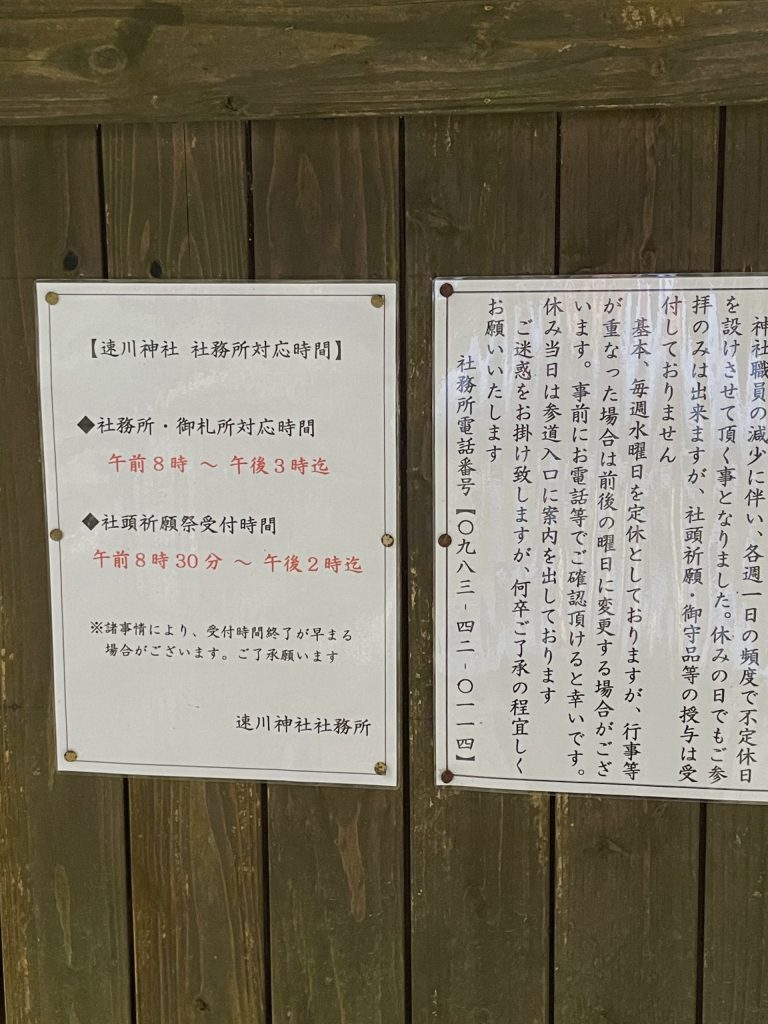 【速川神社 社務所対応時間】
◆社務所・御札所対応時間
午前8時 ～ 午後3時迄
◆社頭祈願祭受付時間
午前8時30分 ～ 午後2時迄
※諸事情により、受付時間終了が早まる
場合がございます。ご了承願います
速川神社社務所
神社職員の減少に伴い、各週一日の頻度で不定休日
を設けさせて頂く事となりました。休みの日でもご参
拝のみは出来ますが、社頭祈願・御守品等の授与は受
付しておりません
基本、毎週水曜日を定休としておりますが、行事等
が重なった場合は前後の曜日に変更する場合がござ
います。事前にお電話等でご確認頂けると幸いです。
休み当日は参道入口に案内を出しております
ご迷惑をお掛け致しますが、何卒ご了承の程宜しく
お願いいたします
社務所電話番号【〇九八三-四二-〇一一四】